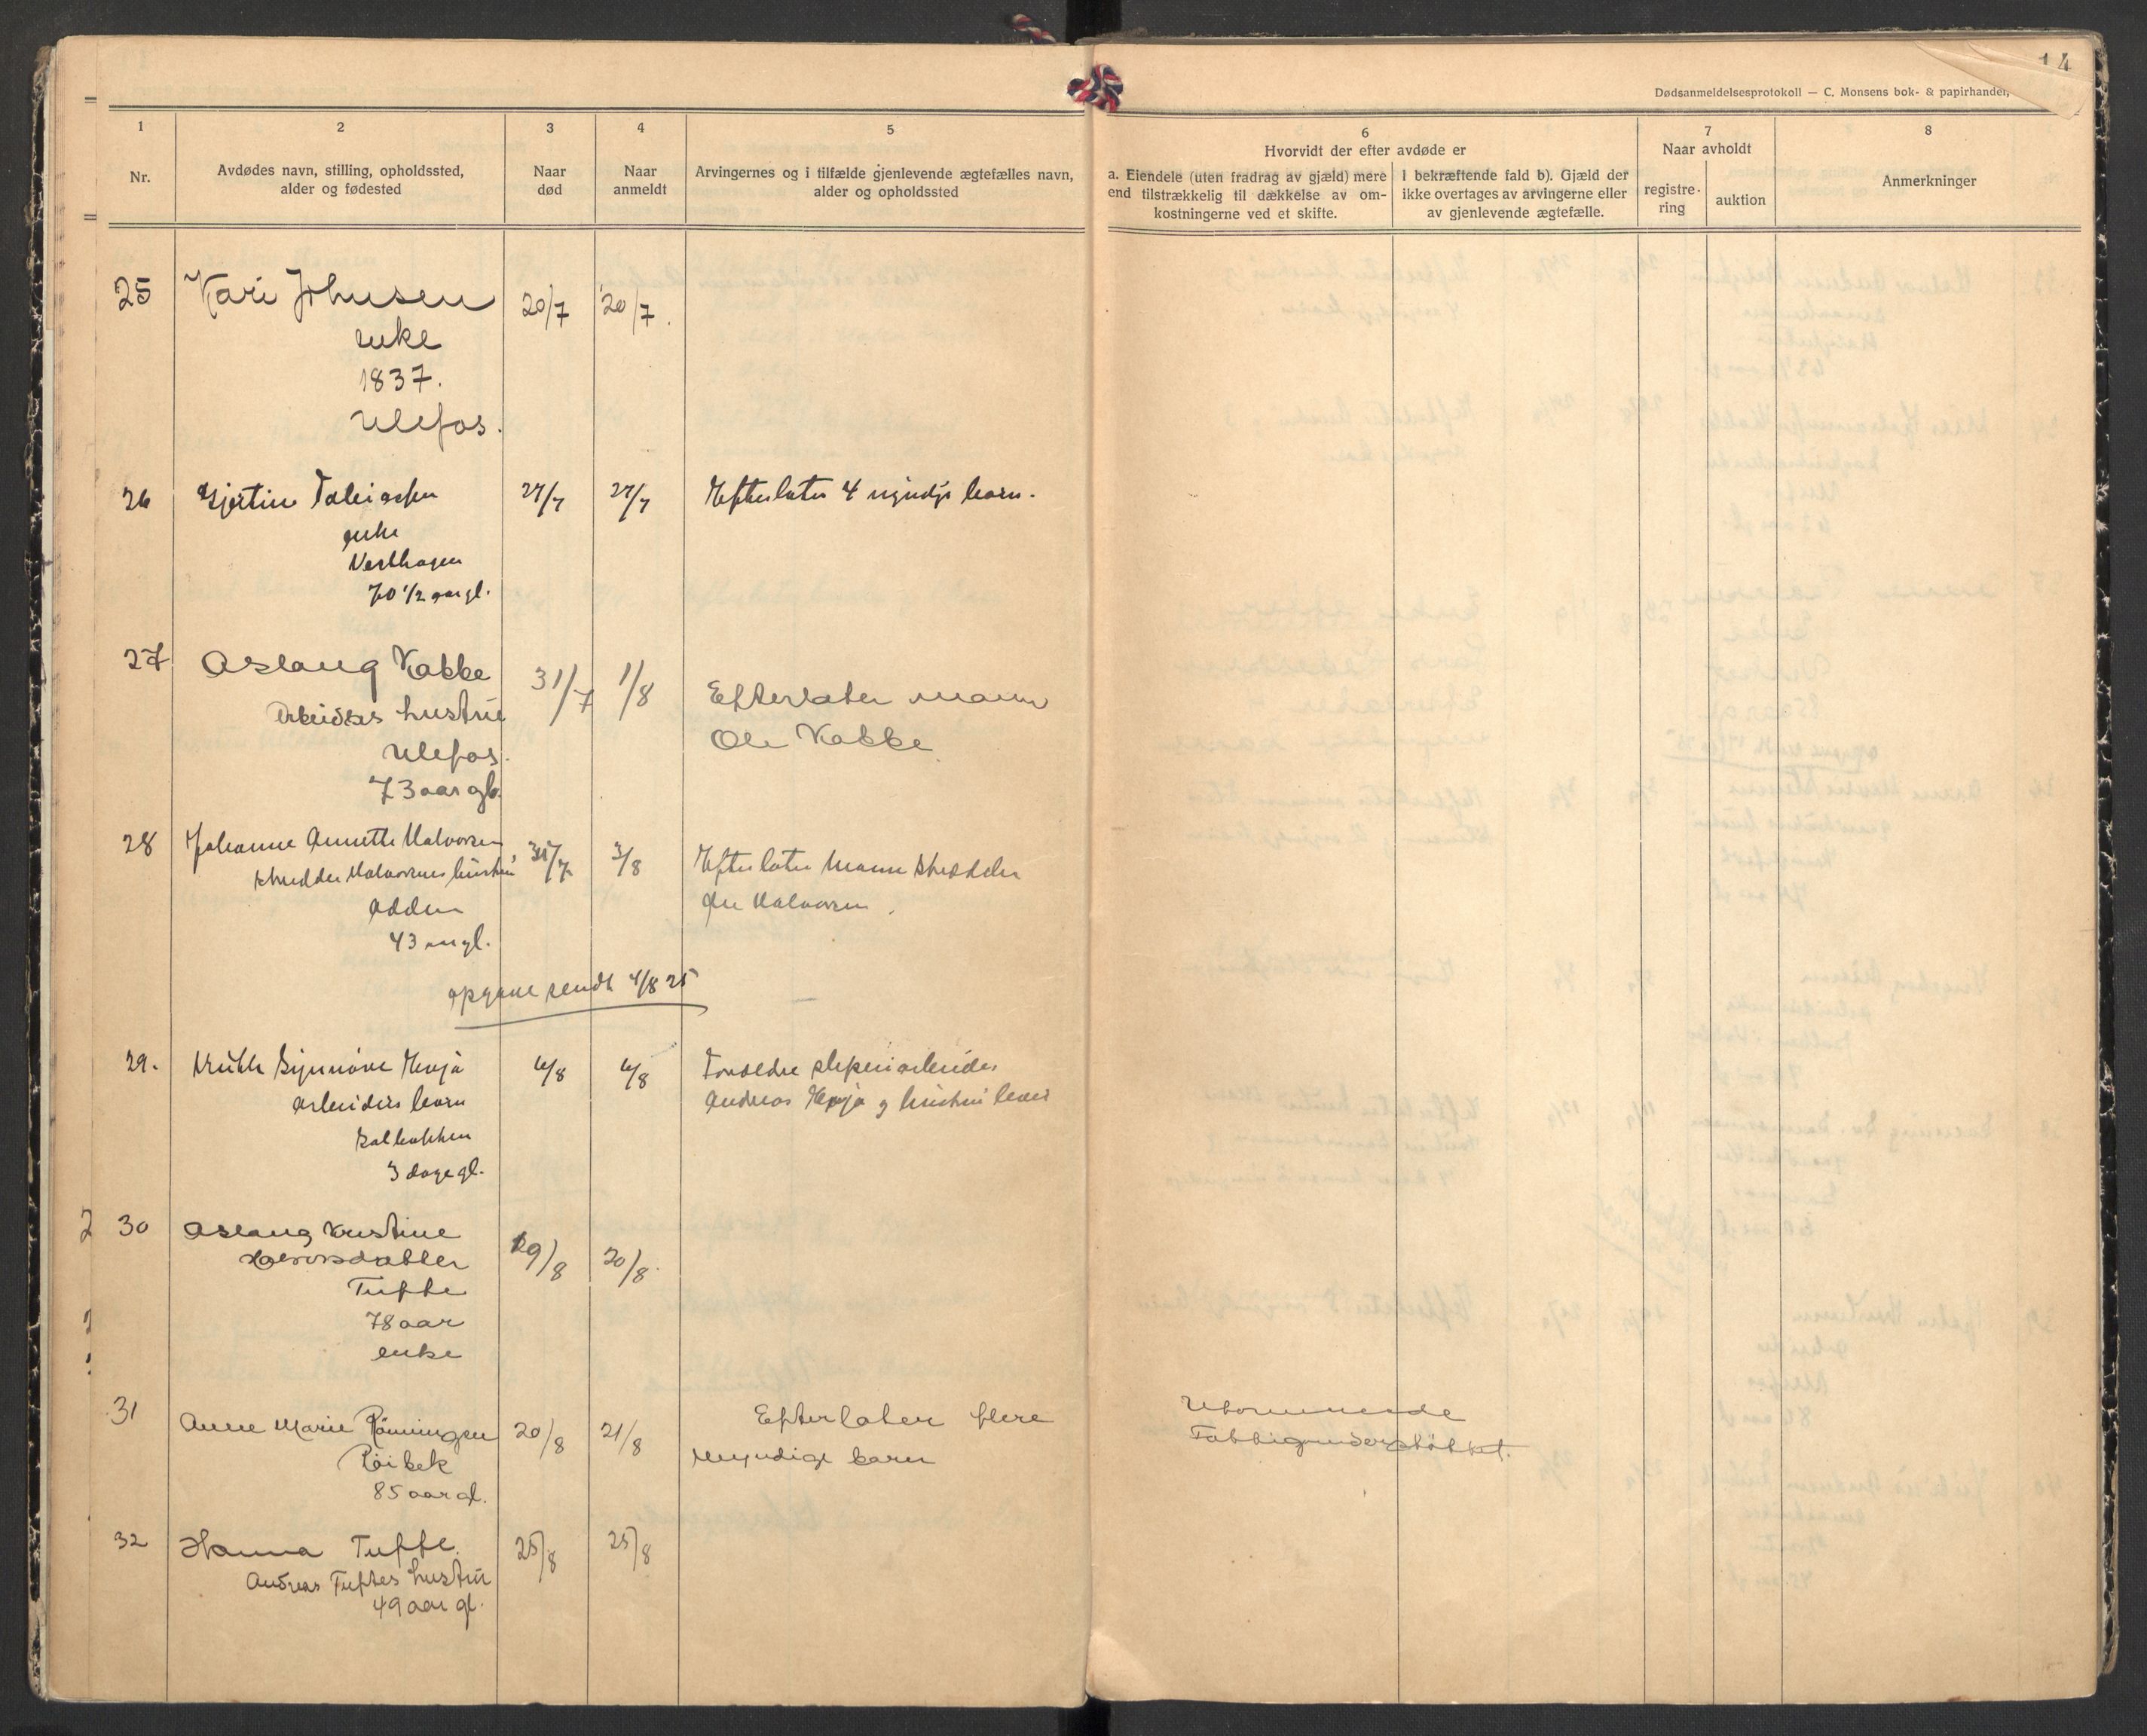 14
Dødsanmeldelsesprotokoll — C. Monsens bok- & papirhandel,
1
2
3
4
5
6
7
8
Nr.
Avdødes navn, stilling, opholdssted,
alder og fødested
Naar
død
Naar
anmeldt
Arvingernes og i tilfælde gjenlevende ægtefælles navn,
alder og opholdssted
Hvorvidt der efter avdøde er
a. Eiendele (uten fradrag av gjæld) mere
end tilstrækkelig til dækkelse av om-
kostningerne ved et skifte.
I bekræftende fald b). Gjæld der
ikke overtages av arvingerne eller
av gjenlevende ægtefælle.
Naar avholdt
registre-
ring
auktion
Anmerkninger
25 Kari Johnsen 20/7 20/7.
enke
1837.
Ulefos.
26 Gjertine 27/7 27/7 Efterlater 4 myndige barn.
enke
Vesthagen
70 1/2 aar gl.
27 Aslaug Kabbe 31/7 1/8 Efterlater mann
Arbeiders hustru Ole Kabbe
Ulefos.
73 aar gl.
28 Johanne Annette Halvorsen 31/7 3/8 Efterlater mann skredder
skredder Halvorsens hustru Ole Halvorsen.
Adden
43 aar gl.
opgave sendt 4/8 25
29. Synnøve Henja 6/8 6/8 Forældre sliperiarbeider
arbeiders barn Andreas Henja og hustru lever
3 dage gl.
30 Aslaug Kristine 19/8 20/8
Halvorsdatter
Tufte
78 aar
enke
31 Anne Marie Rønningen 20/8 21/8 Efterlater flere Utkommende
Röibek myndige barn Fattigunderstøttet.
85 aar gl.
32 Hanna Tufte. 25/8 25/8
Andreas Tuftes hustru
49 aar gl.